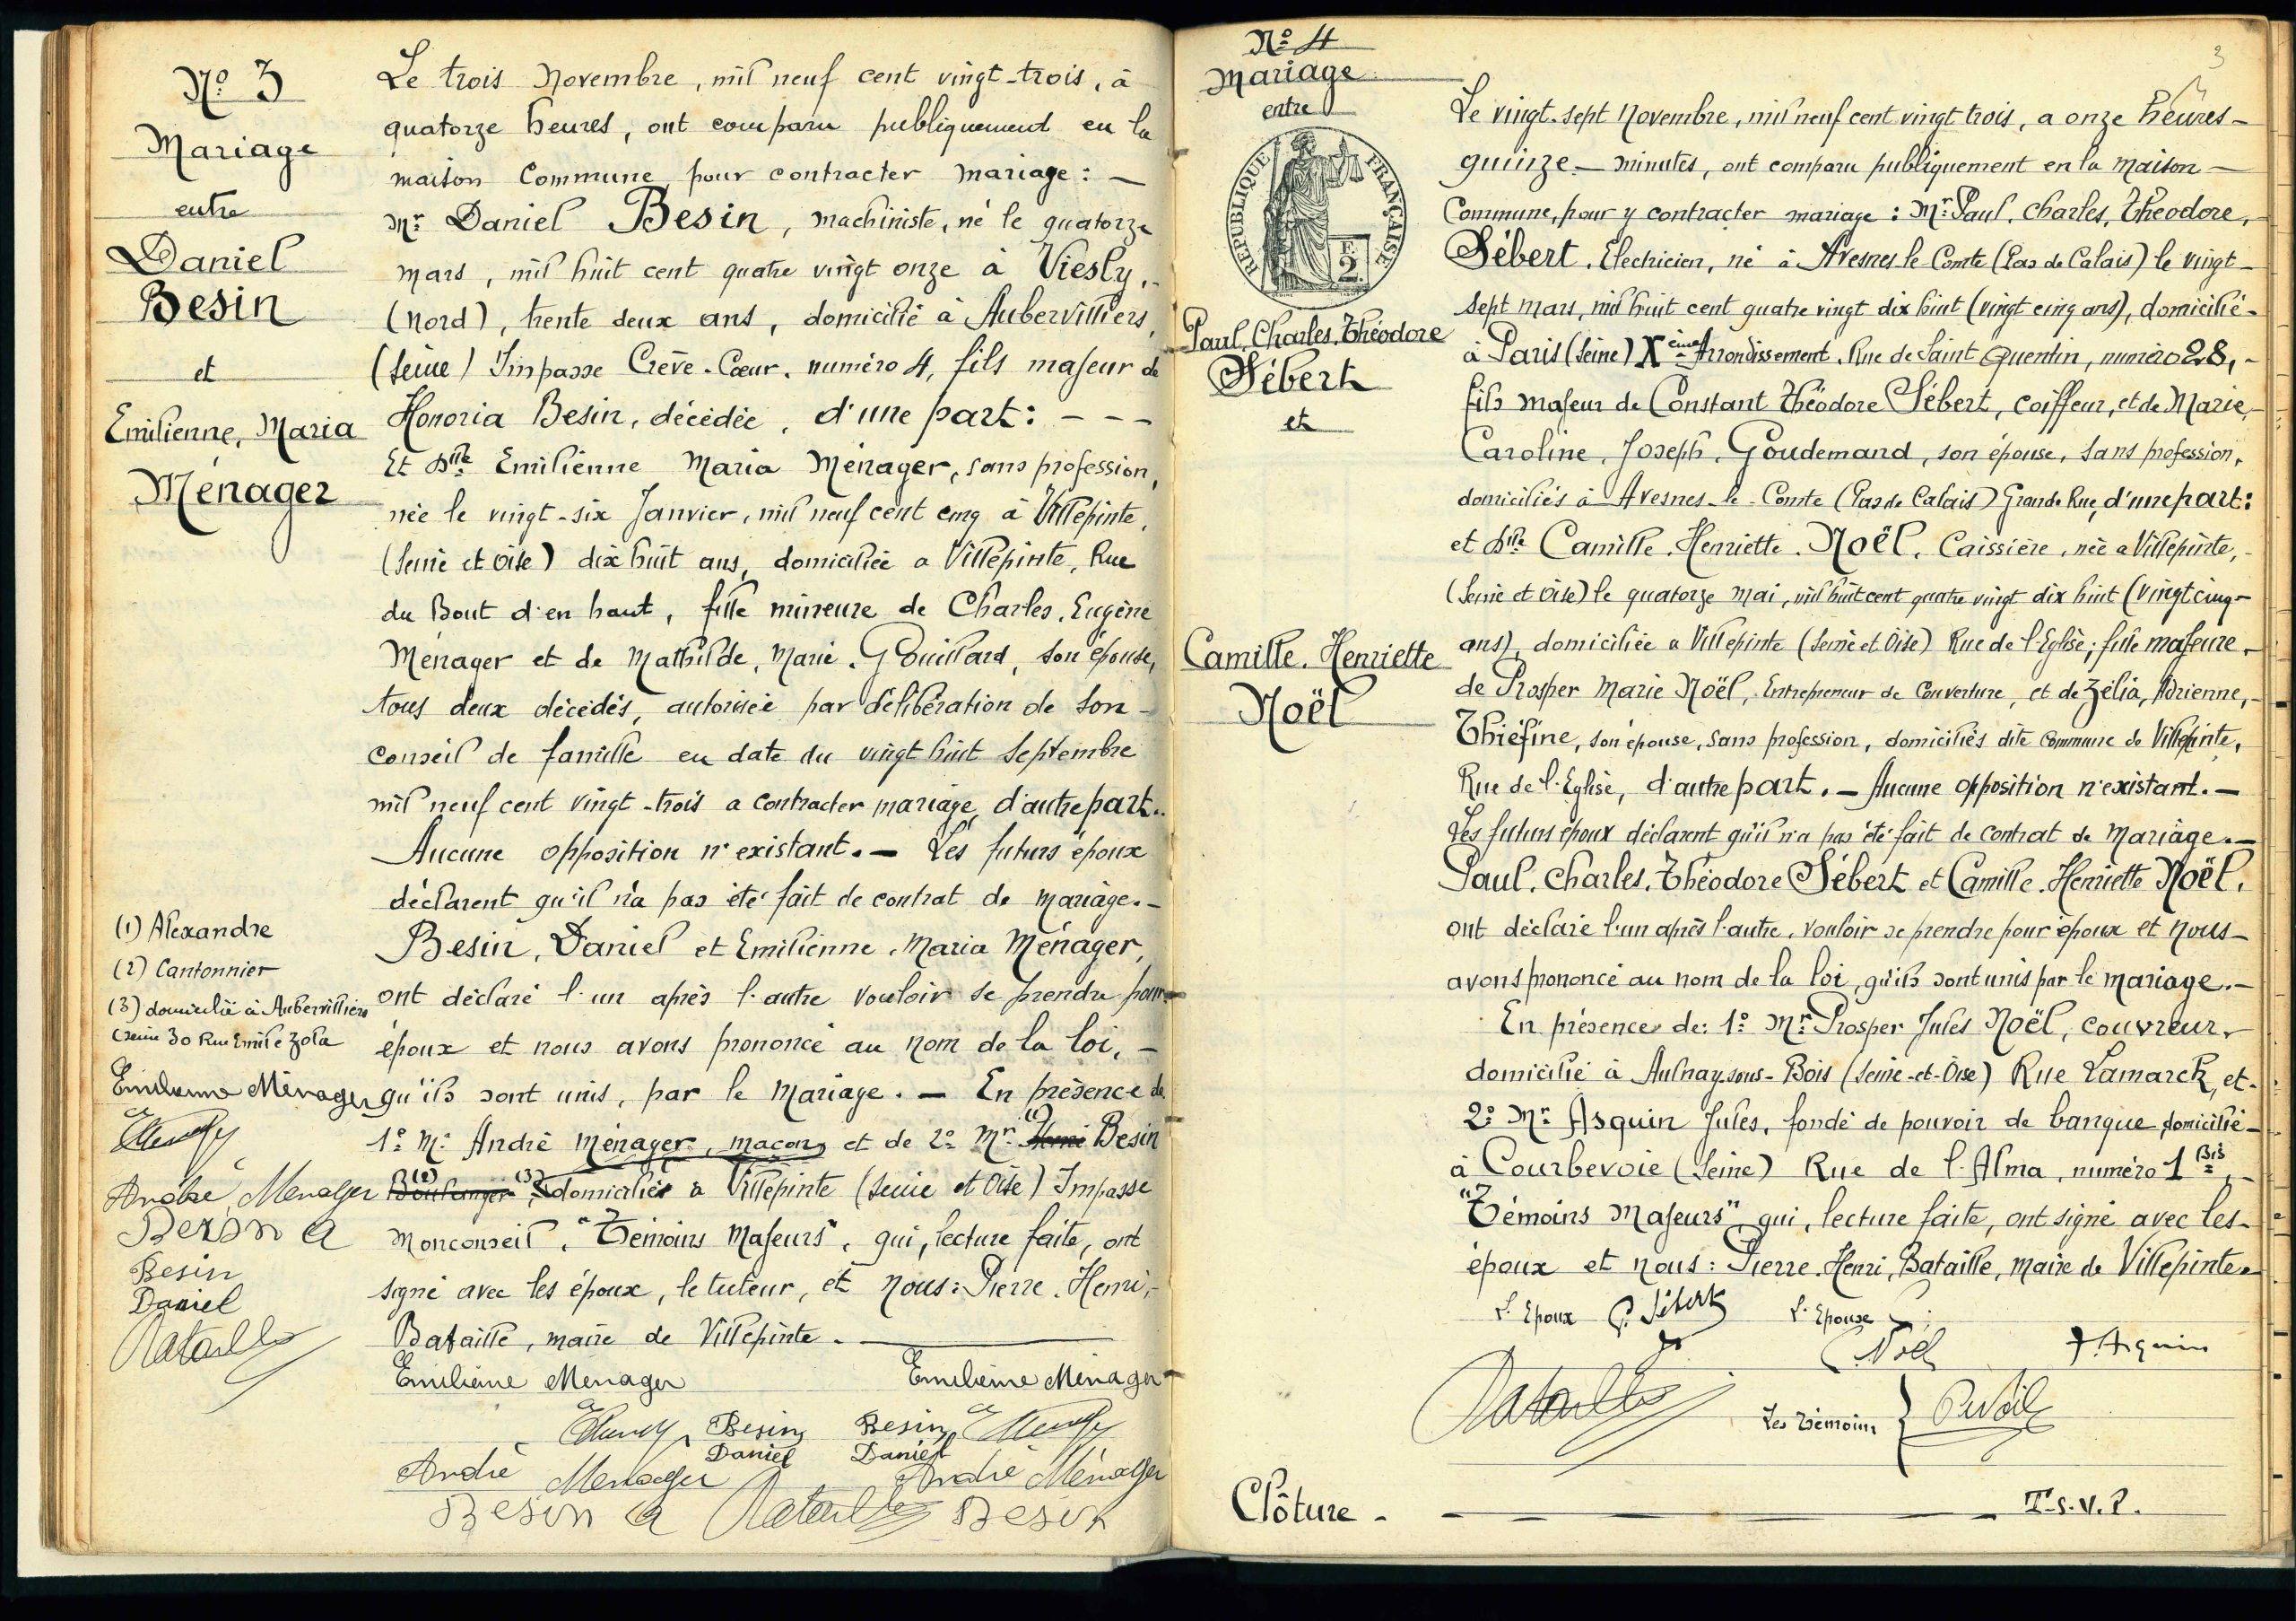 Nº 3
Mariage
entre
Daniel
Besin
et
Emilienne, Maria
Ménager
Le trois Novembre, mil neuf cent vingt-trois, à
quatorze heures, ont comparu publiquement en la
maison Commune pour contracter mariage : —
Mr. Daniel Besin, machiniste, né le quatorze
mars, mil huit cent quatre vingt onze à Viesly,
(Nord), trente deux ans, domicilié à Aubervilliers,
(Seine) Impasse Crève-Cœur, numéro 4, fils majeur de
Honoria Besin, décédée, d'une part : - - -
Et Dlle Emilienne Maria Ménager, sans profession,
née le vingt-six Janvier, mil neuf cent cinq à Villepinte,
(Seine et Oise) dix huit ans, domiciliée a Villepinte, Rue
du Bout d'en haut, fille mineure de Charles, Eugène
Ménager et de Mathilde, Marie, Gouillard, son épouse,
tous deux décédés, autorisée par délibération de son -
conseil de famille en date du vingt huit Septembre
mil neuf cent vingt-trois a contracter mariage, d'autre part.
Aucune opposition n'existant. — Les futurs époux
déclarent qu'il n'a pas été fait de contrat de mariage. -
Besin, Daniel et Emilienne, Maria Ménager,
ont déclaré l'un après l'autre vouloir se prendre pour
époux et nous avons prononcé au nom de la loi, -
qu'ils sont unis, par le mariage. — En présence de
1º M. André Ménager, maçon, et de 2º Mr. (1) Henri Besin
Boulanger (2) (3) domiciliés à Villepinte (Seine et Oise) Impasse
Monconseil, "Témoins Majeurs", qui, lecture faite, ont
signé avec les époux, le tuteur, et nous : Pierre, Henri, -
Bataille, maire de Villepinte. —
(1) Alexandre
(2) Cantonnier
(3) domicilié à Aubervilliers
(Seine 30 Rue Emile Zola
Emilienne Ménager
André Menager
Besin A
Besin
Daniel
Bataille
Emilienne Menager Emilienne Ménager
Besin Besin
Daniel Daniel
André Menager André Ménager
Besin A Bataille Besin
Nº 4
Mariage
entre
REPUBLIQUE FRANÇAISE
F.
2.
Paul, Charles, Théodore
Sébert
et
Camille, Henriette
Noël
3
Le vingt-sept Novembre, mil neuf cent vingt trois, a onze heures -
quinze - minutes, ont comparu publiquement en la maison -
Commune, pour y contracter mariage : Mr. Paul, Charles, Théodore, -
Sébert, Electricien, né à Avesnes-le-Comte (Pas de Calais) le vingt -
sept mars, mil huit cent quatre vingt dix huit (vingt cinq ans), domicilié -
à Paris (Seine) Xème Arrondissement, Rue de Saint Quentin, numéro 28, -
fils majeur de Constant Théodore Sébert, coiffeur, et de Marie, -
Caroline, Joseph, Goudemand, son épouse, sans profession,
domiciliés à Avesnes-le-Comte (Pas de Calais) Grande Rue, d'une part :
et Dlle Camille, Henriette, Noël, Caissière, née a Villepinte, -
(Seine et Oise) le quatorze mai, mil huit cent quatre vingt dix huit (vingt cinq -
ans), domiciliée a Villepinte (Seine et Oise) Rue de l'Eglise ; fille majeure, -
de Prosper Marie Noël, Entrepreneur de Couverture, et de Zélia, Adrienne, -
Thiéfine, son épouse, sans profession, domiciliés dite Commune de Villepinte,
Rue de l'Eglise, d'autre part. — Aucune opposition n'existant. —
Les futurs époux déclarent qu'il n'a pas été fait de contrat de mariage. —
Paul, Charles, Théodore Sébert et Camille, Henriette Noël,
ont déclaré l'un après l'autre, vouloir se prendre pour époux et nous -
avons prononcé au nom de la loi, qu'ils sont unis par le mariage. —
En présence de : 1º Mr. Prosper Jules Noël, couvreur,
domicilié à Aulnay-sous-Bois (Seine-et-Oise) Rue Lamarck, et -
2º Mr. Asquin Jules, fondé de pouvoir de banque, domicilié -
à Courbevoie (Seine) Rue de l'Alma, numéro 1 Bis, -
"Témoins Majeurs" qui, lecture faite, ont signé avec les -
époux et nous : Pierre, Henri, Bataille, maire de Villepinte.
L'Epoux P. Sébert L'Epouse
C. Noël J. Asquin
Bataille Les Témoins } P. Noël
Clôture - T.S.V.P.